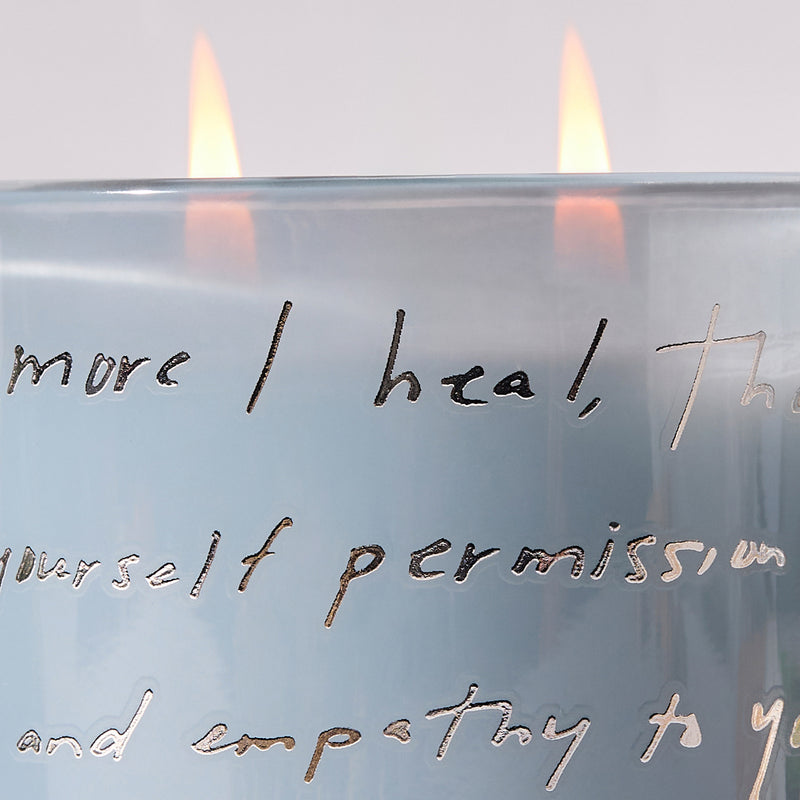 more I heal, the
yourself permission
and empathy to yo